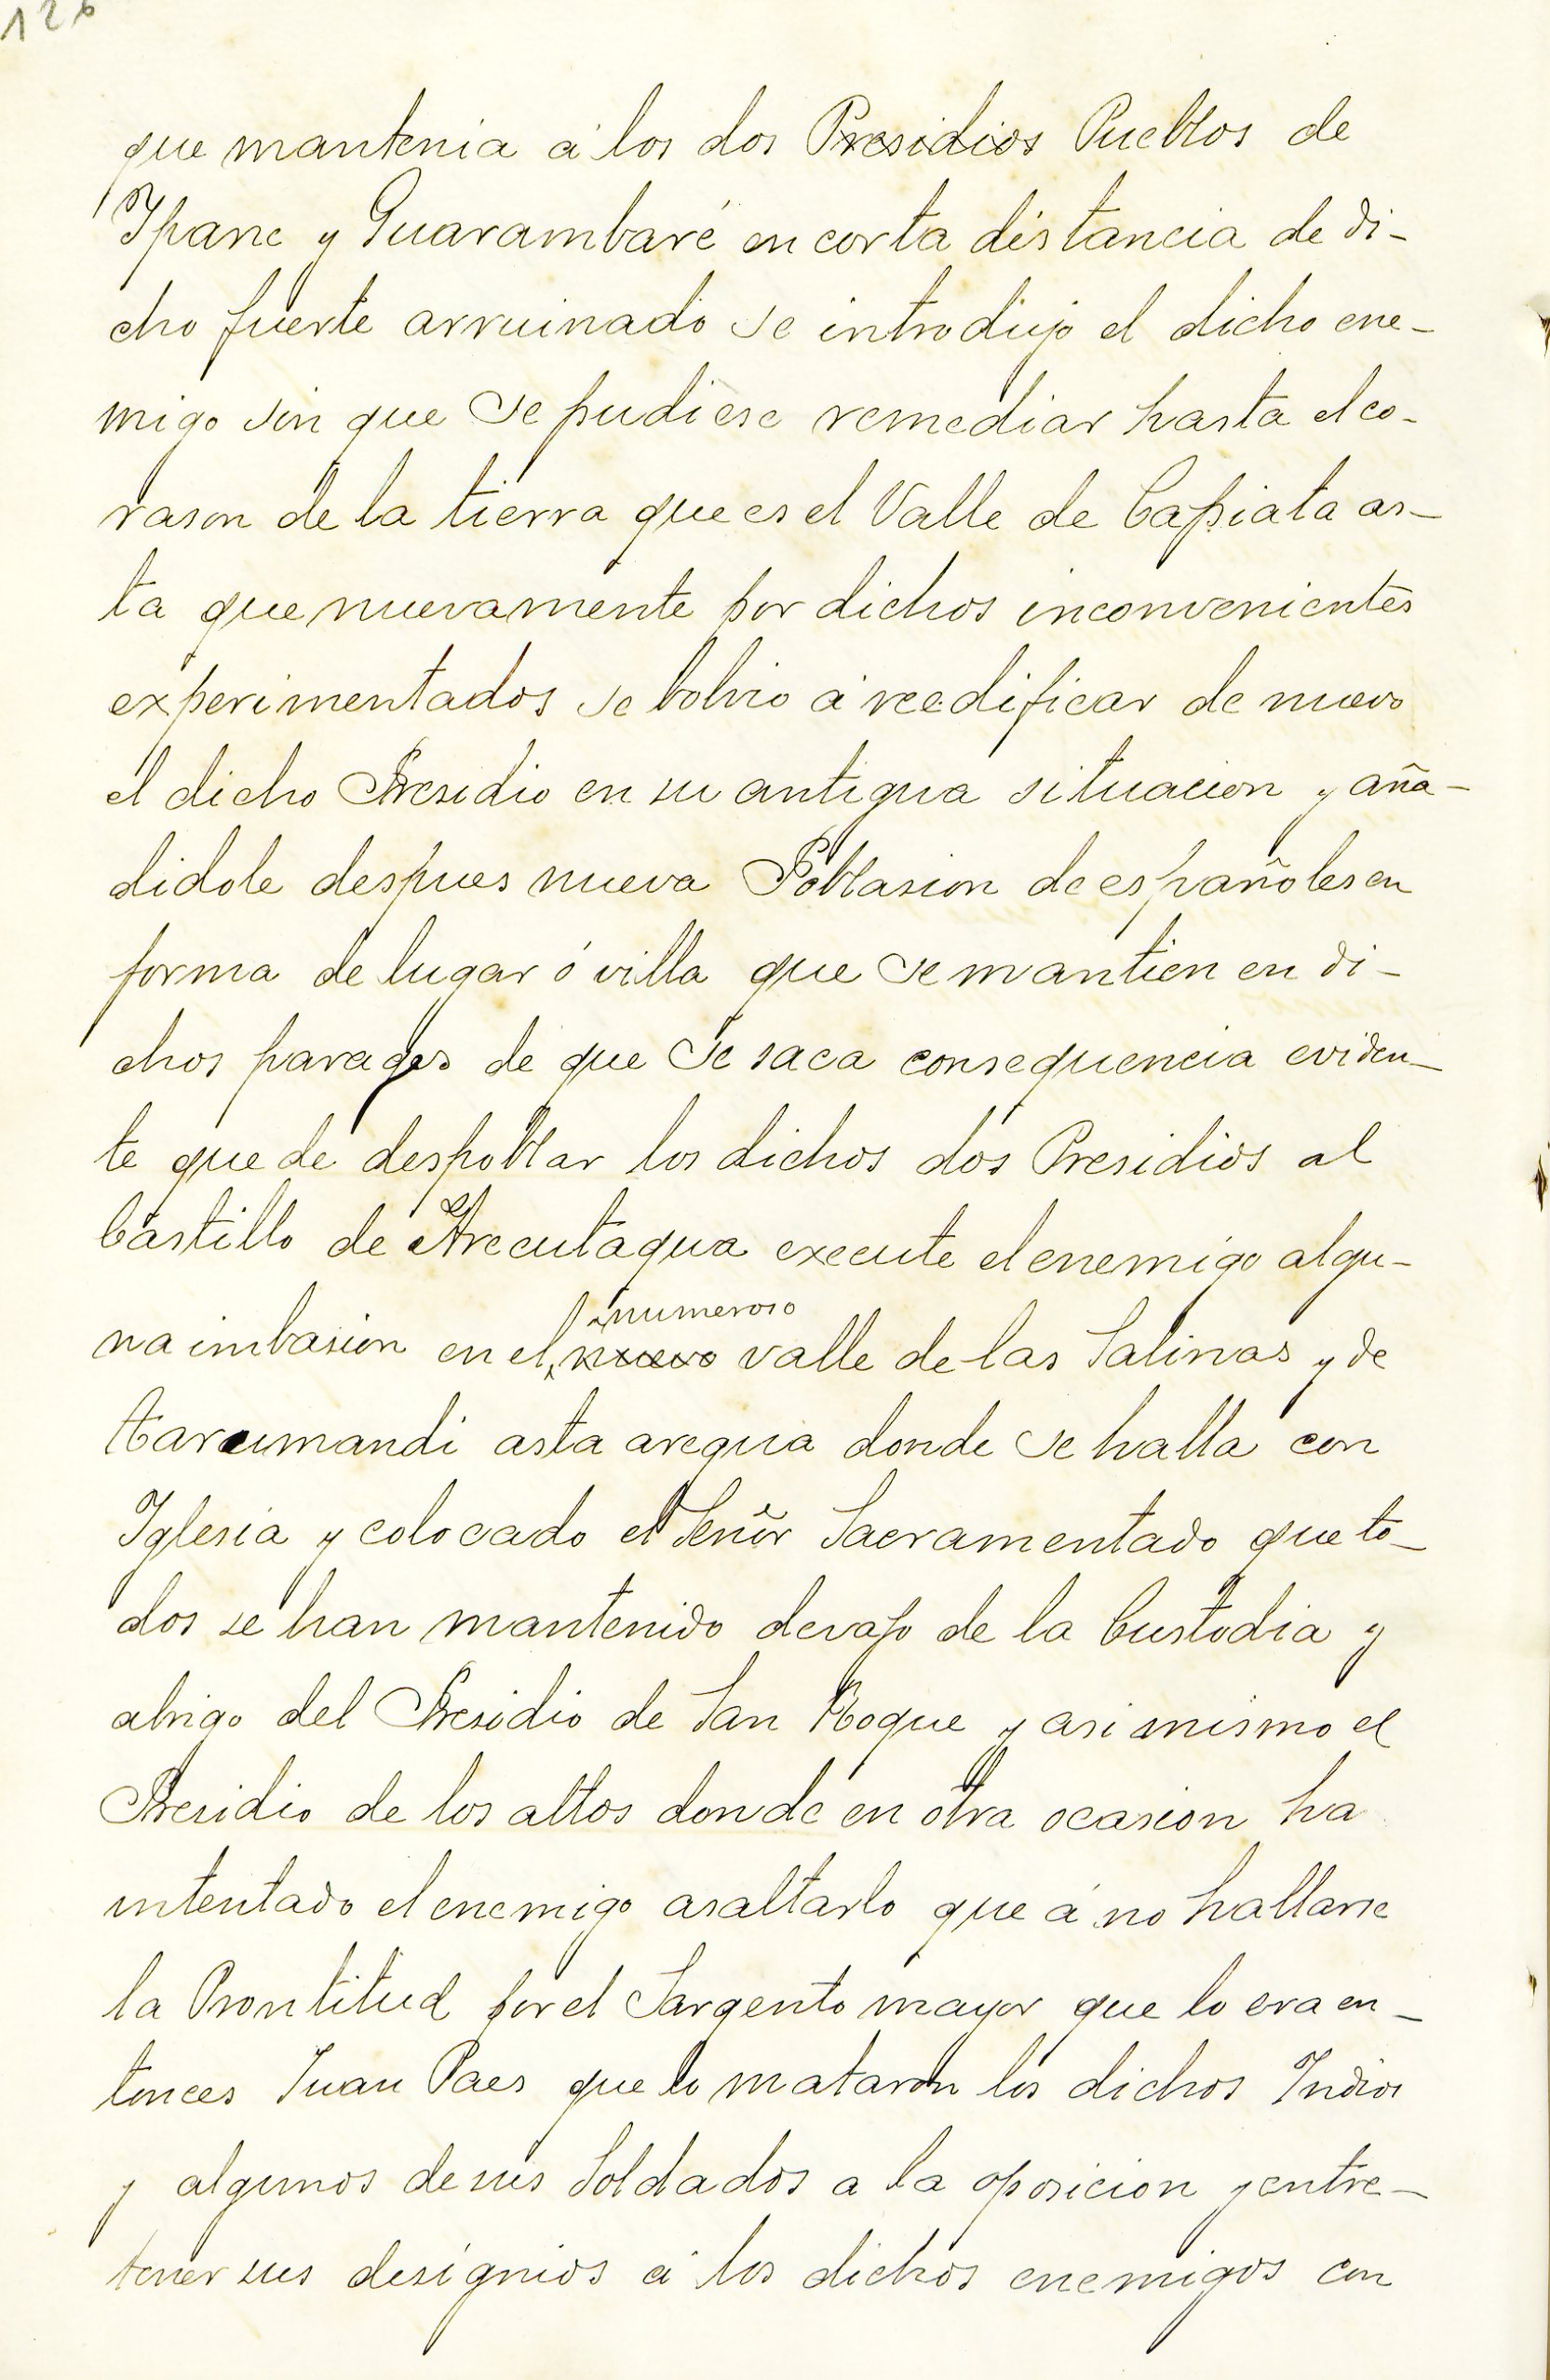 126
que mantenia á los dos Presidios Pueblos de
Ypane y Guarambaré en corta distancia de di-
cho fuerte arruinado se introdujo el dicho ene-
migo sin que se pudiese remediar hasta el co-
rason de la tierra que es el Valle de Capiata as-
ta que nuevamente por dichos inconvenientes
experimentados se bolvio á reedificar de nuevo
el dicho Presidio en su antigua situacion y aña-
didole despues nueva Poblasion de españoles en
forma de lugar ó villa que se mantien en di-
chos parages de que se saca consequencia eviden-
te que de despoblar los dichos dos Presidios al
Castillo de Arecutagua execute el enemigo algu-
numeroso
na imbasion en el nuevo valle de las Salinas y de
Tarumandi asta aregua donde se halla con
Iglesia y colocado el Señor Sacramentado que to-
dos se han mantenido devajo de la Custodia y
abrigo del Presidio de San Roque y asi mismo el
Presidio de los altos donde en otra ocasion ha
intentado el enemigo asaltarlo que á no hallarse
la Prontitud por el Sargento mayor que lo era en-
tonces Juan Paes que lo mataron los dichos Indios
y algunos de sus Soldados a la oposicion y entre-
tener sus designios á los dichos enemigos con